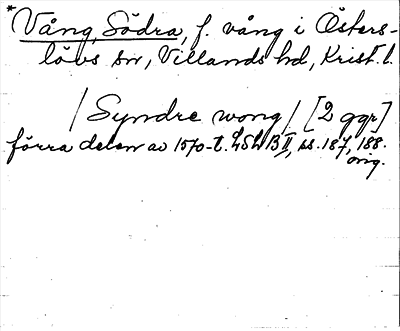 *Vång, Södra, f. vång i Östers-
lövs sn, Villands hd, Krist. l.
/Syndre wong/ [2 ggr]
förra delen av 1570-t. LSLB II, ss. 187, 188.
orig.